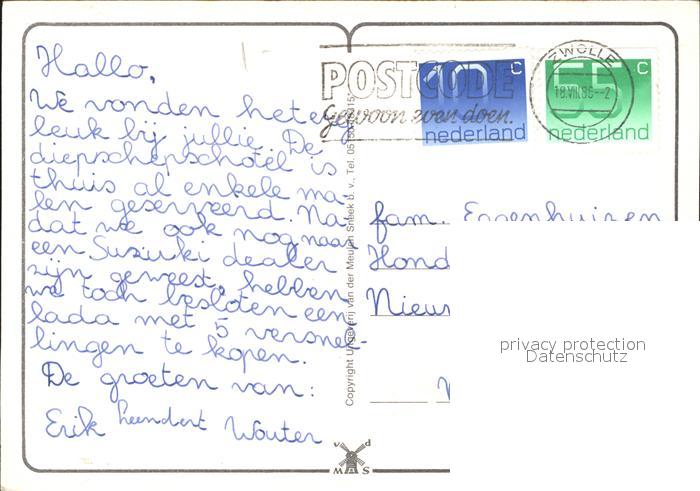 Hallo,
We vonden het erg
leuk bij jullie. De
diepschepschotel is
thuis al enkele ma-
len geserveerd. Na
dat we ook nog naar
een Suzuki dealer
zijn geweest, hebben
we toch besloten een
lada met 5 versnel-
lingen te kopen.
De groeten van:
Erik Leendert Wouter
POSTCODE
Gewoon even doen.
10 C
nederland
55 C
nederland
ZWOLLE
18.VIII.86--2
Copyright Uitgeverij van der Meulen Sneek b.v., Tel.
fam. Eggenhuizen
Hond
Nieuw
privacy protection
Datenschutz
v d
MAS